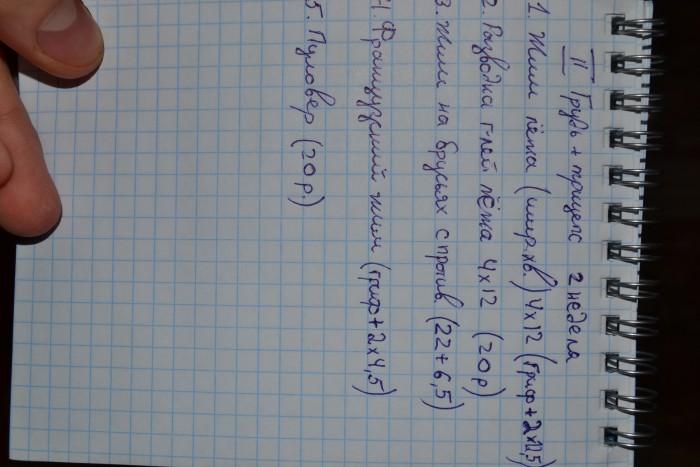 II Грудь + трицепс 2 неделя
1. Жим лёжа (шир.хв.) 4x12 (гриф + 2x12,5)
2. Разводка г-лей лёжа 4x12 (20р)
3. Жим на брусьях с против. (22+6,5)
4. Французский жим (гриф + 2x4,5)
5. Пуловер (20р.)